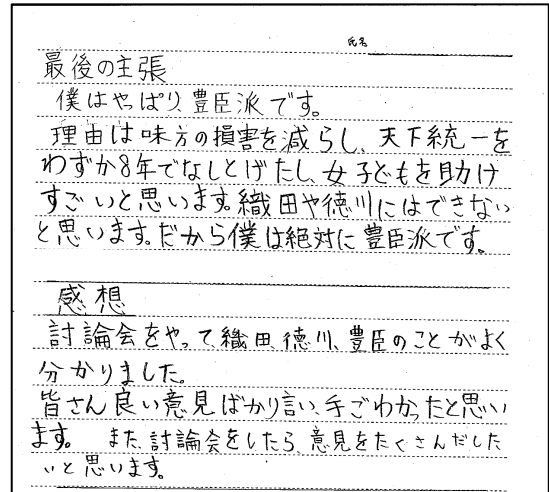 氏名
最後の主張
僕はやっぱり、豊臣派です。
理由は味方の損害を減らし、天下統一を
わずか8年でなしとげたし、女子どもを助け
すごいと思います。織田や徳川にはできない
と思います。だから僕は絶対に豊臣派です。
感想
討論会をやって、織田、徳川、豊臣のことがよく
分かりました。
皆さん良い意見ばかり言い、手ごわかったと思い
ます。 また、討論会をしたら、意見をたくさんだした
いと思います。